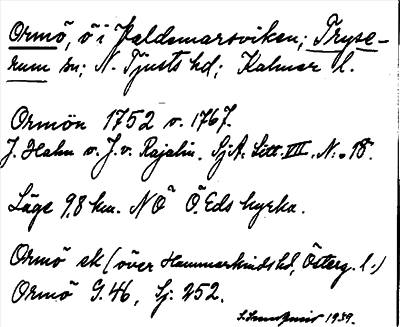 Ormö, ö i Valdemarsviken; Tryse-
rum sn; N. Tjusts hd; Kalmar l.
Ormön 1752 o. 1767.
J. Hahn o. J. v. Rajalin. SjA. Litt. VIII, N:o 18.
Läge 9,8 km. NO Ö. Eds kyrka.
Ormö ek (över Hammarkinds hd, Österg. l.)
Ormö G. 46, Sj. 252.
1939.